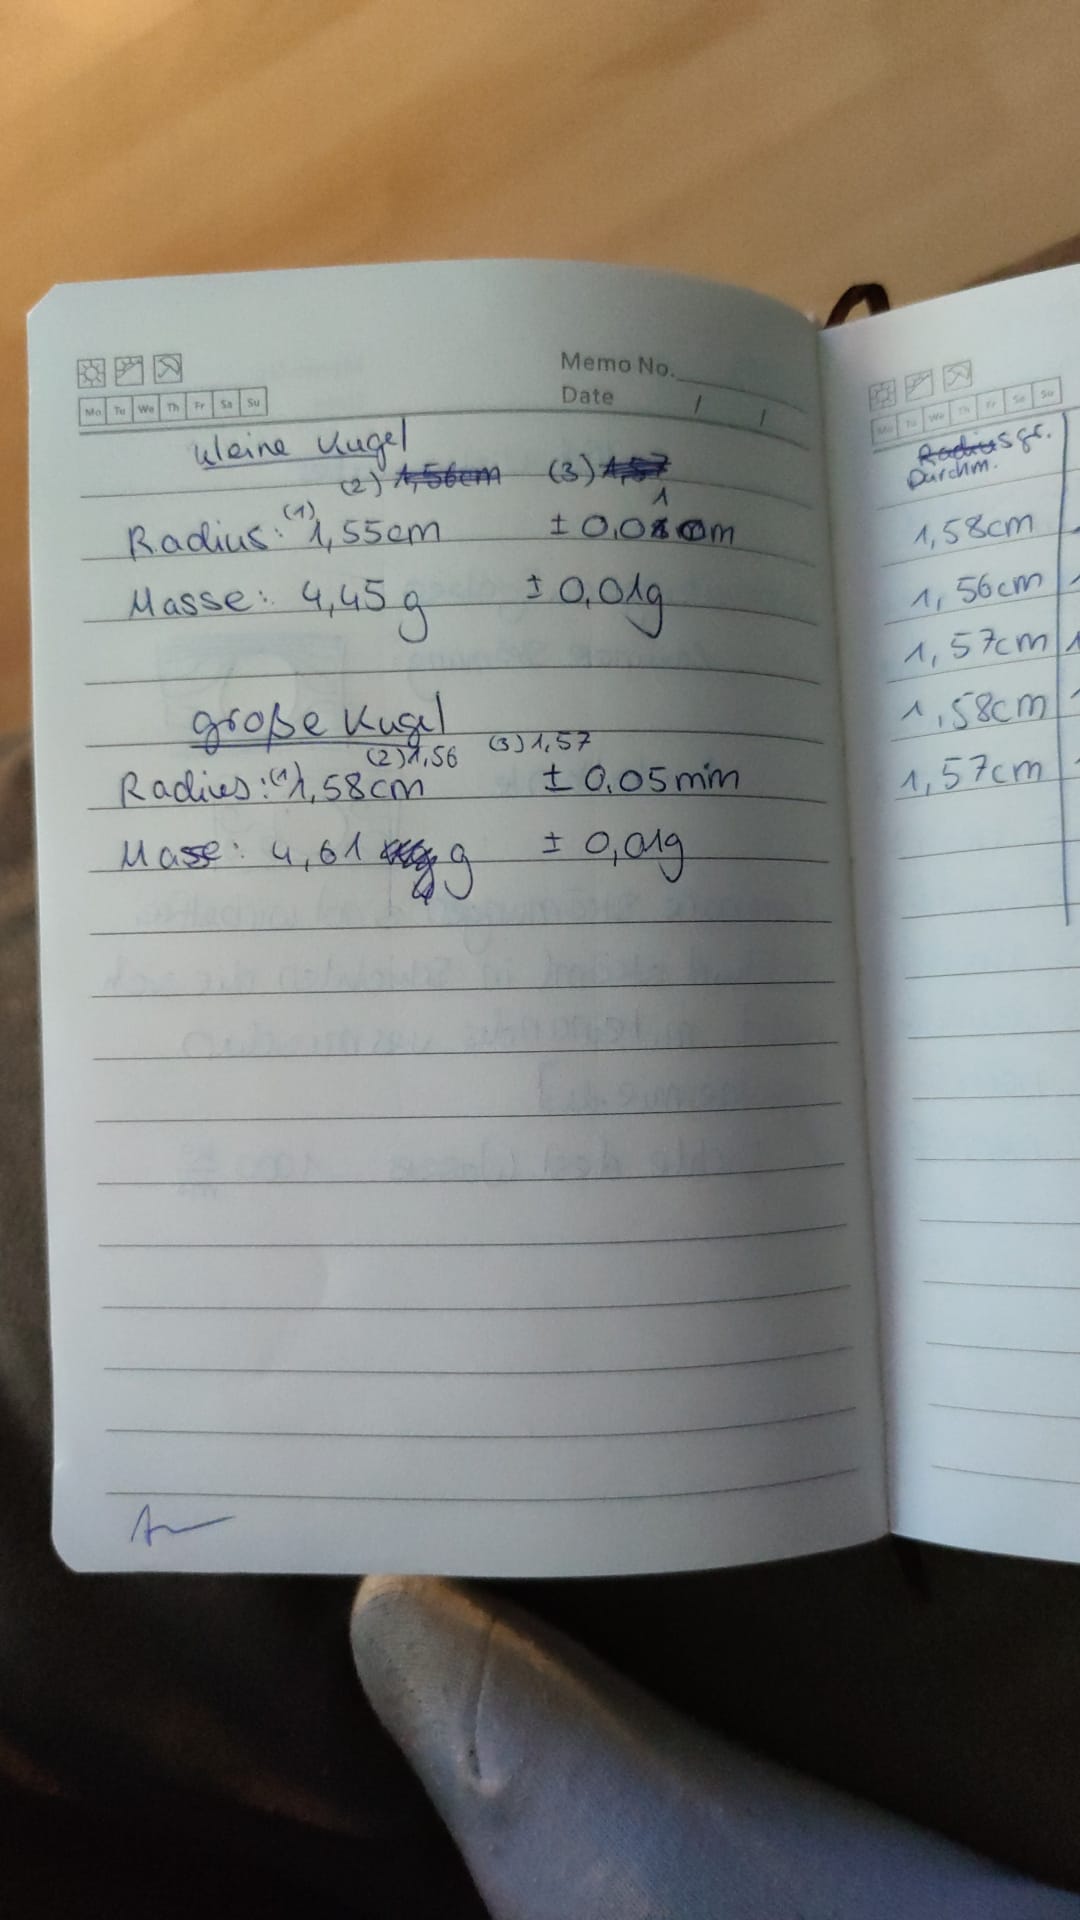 Memo No.
Date / /
Mo Tu We Th Fr Sa Su
kleine Kugel
(2) 1,56cm (3) 1,57
Radius: (1) 1,55cm ± 0,01 cm
Masse: 4,45 g ± 0,01g
große Kugel
(2) 1,56 (3) 1,57
Radius: (1) 1,58cm ± 0.05mm
Masse: 4,61 g ± 0,01g
Mo Tu We Th Fr Sa Su
Radius gr.
Durchm.
1,58cm
1,56cm
1,57cm
1,58cm
1,57cm